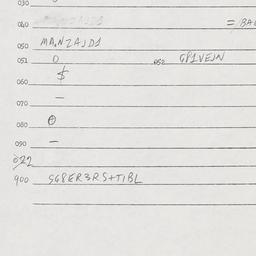 030
040 = BA
050 MA.NZAJD1
051 0 052 GP1VEJN
060 $
070 —
080 θ
090 —
022
900 5G8ER3RS+TIBL